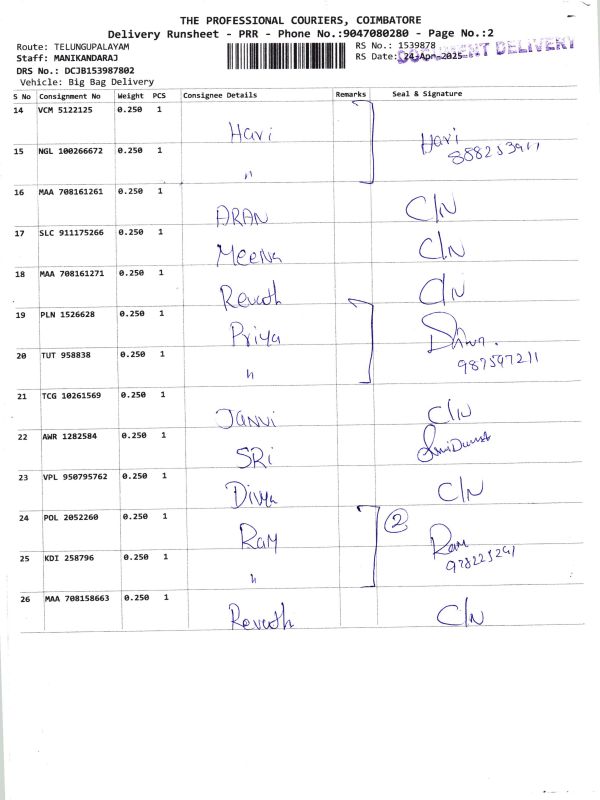 THE PROFESSIONAL COURIERS, COIMBATORE
Delivery Runsheet - PRR - Phone No.:9047080280 - Page No.:2
Route: TELUNGUPALAYAM RS No.: 1539878
Staff: MANIKANDARAJ RS Date: 24-Apr-2025 DELIVERY
DRS No.: DCJB153987802
Vehicle: Big Bag Delivery
S No Consignment No Weight PCS Consignee Details Remarks Seal & Signature
14 VCM 5122125 0.250 1 Hari
15 NGL 100266672 0.250 1 " Hari
16 MAA 708161261 0.250 1 ARAN C/N
17 SLC 911175266 0.250 1 Meena C/N
18 MAA 708161271 0.250 1 Revath C/N
19 PLN 1526628 0.250 1 Priya
20 TUT 958838 0.250 1 " 987597211
21 TCG 10261569 0.250 1 JANVI C/N
22 AWR 1282584 0.250 1 SRi
23 VPL 950795762 0.250 1 Divya C/N
24 POL 2052260 0.250 1 Ram 2 Ram
25 KDI 258796 0.250 1 " 978225291
26 MAA 708158663 0.250 1 Revath C/N